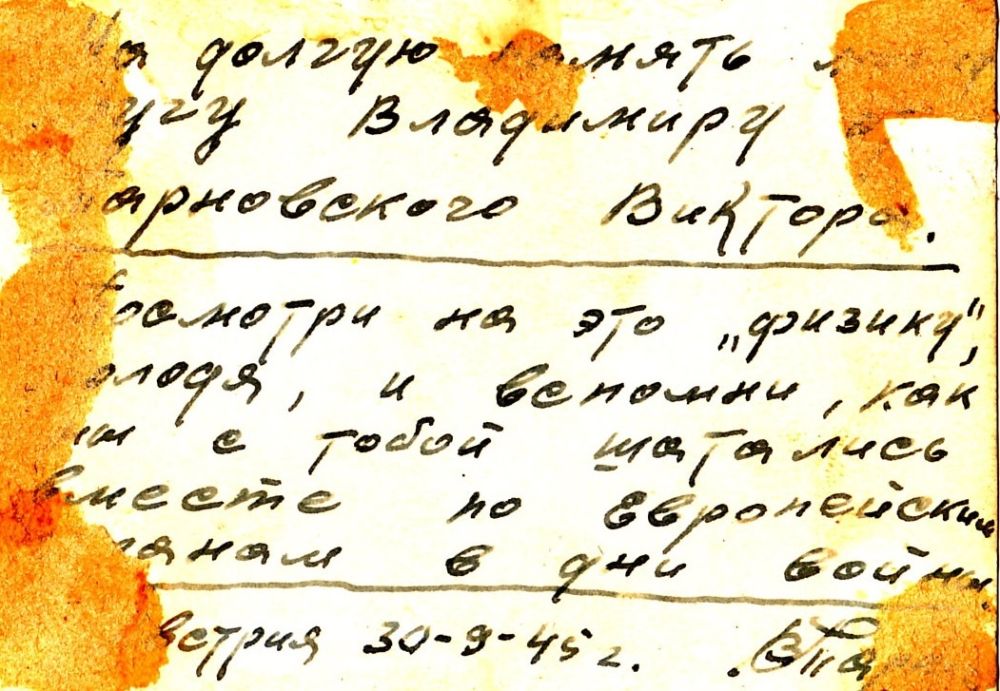 На долгую память
другу Владимиру от
Тарновского Виктора.
Посмотри на это „физику",
Володя, и вспомни, как
мы с тобой шатались
вместе по Европейским
странам в дни войны.
Австрия 30-9-45 г.